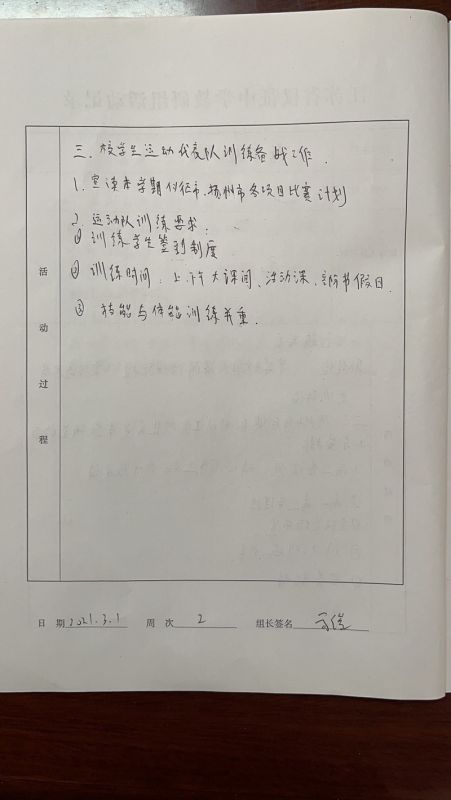 三、校学生运动代表队训练备战工作.
1. 宣读本学期仪征市、扬州市各项目比赛计划
2. 运动队训练要求:
① 训练学生签到制度
② 训练时间: 上、下午大课间、活动课、部分节假日.
③ 技能与体能训练并重.
活动过程
日 期 2021.3.1 周 次 2 组长签名